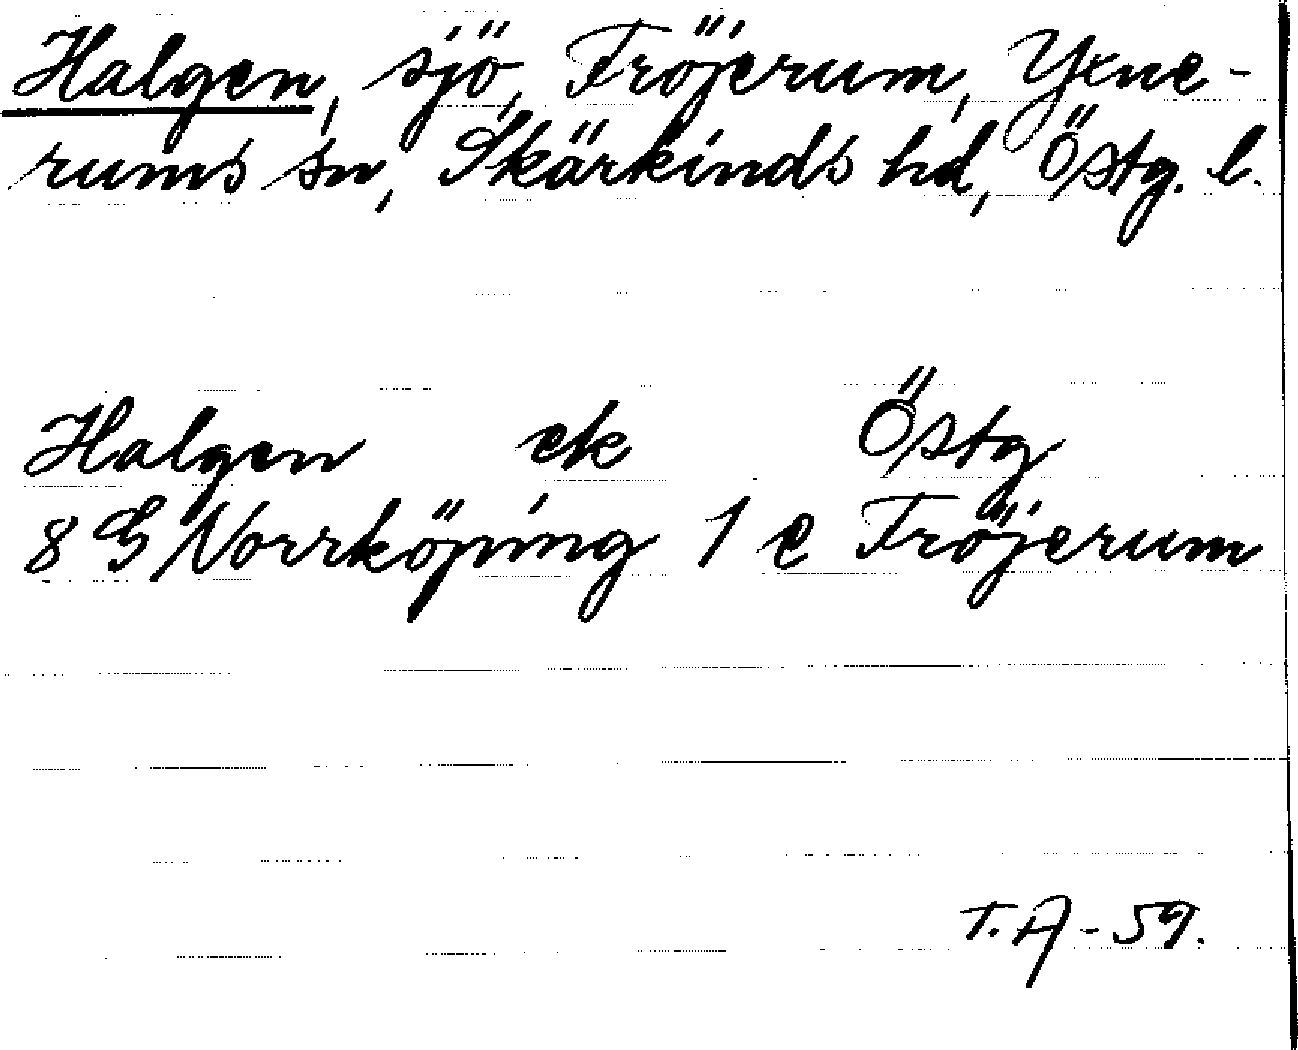 Halgen, sjö, Fröjerum, Yxne-
rums sn, Skärkinds hd, Östg. l.
Halgen ek Östg
8 G Norrköping 1 e Fröjerum
T. A - 59.